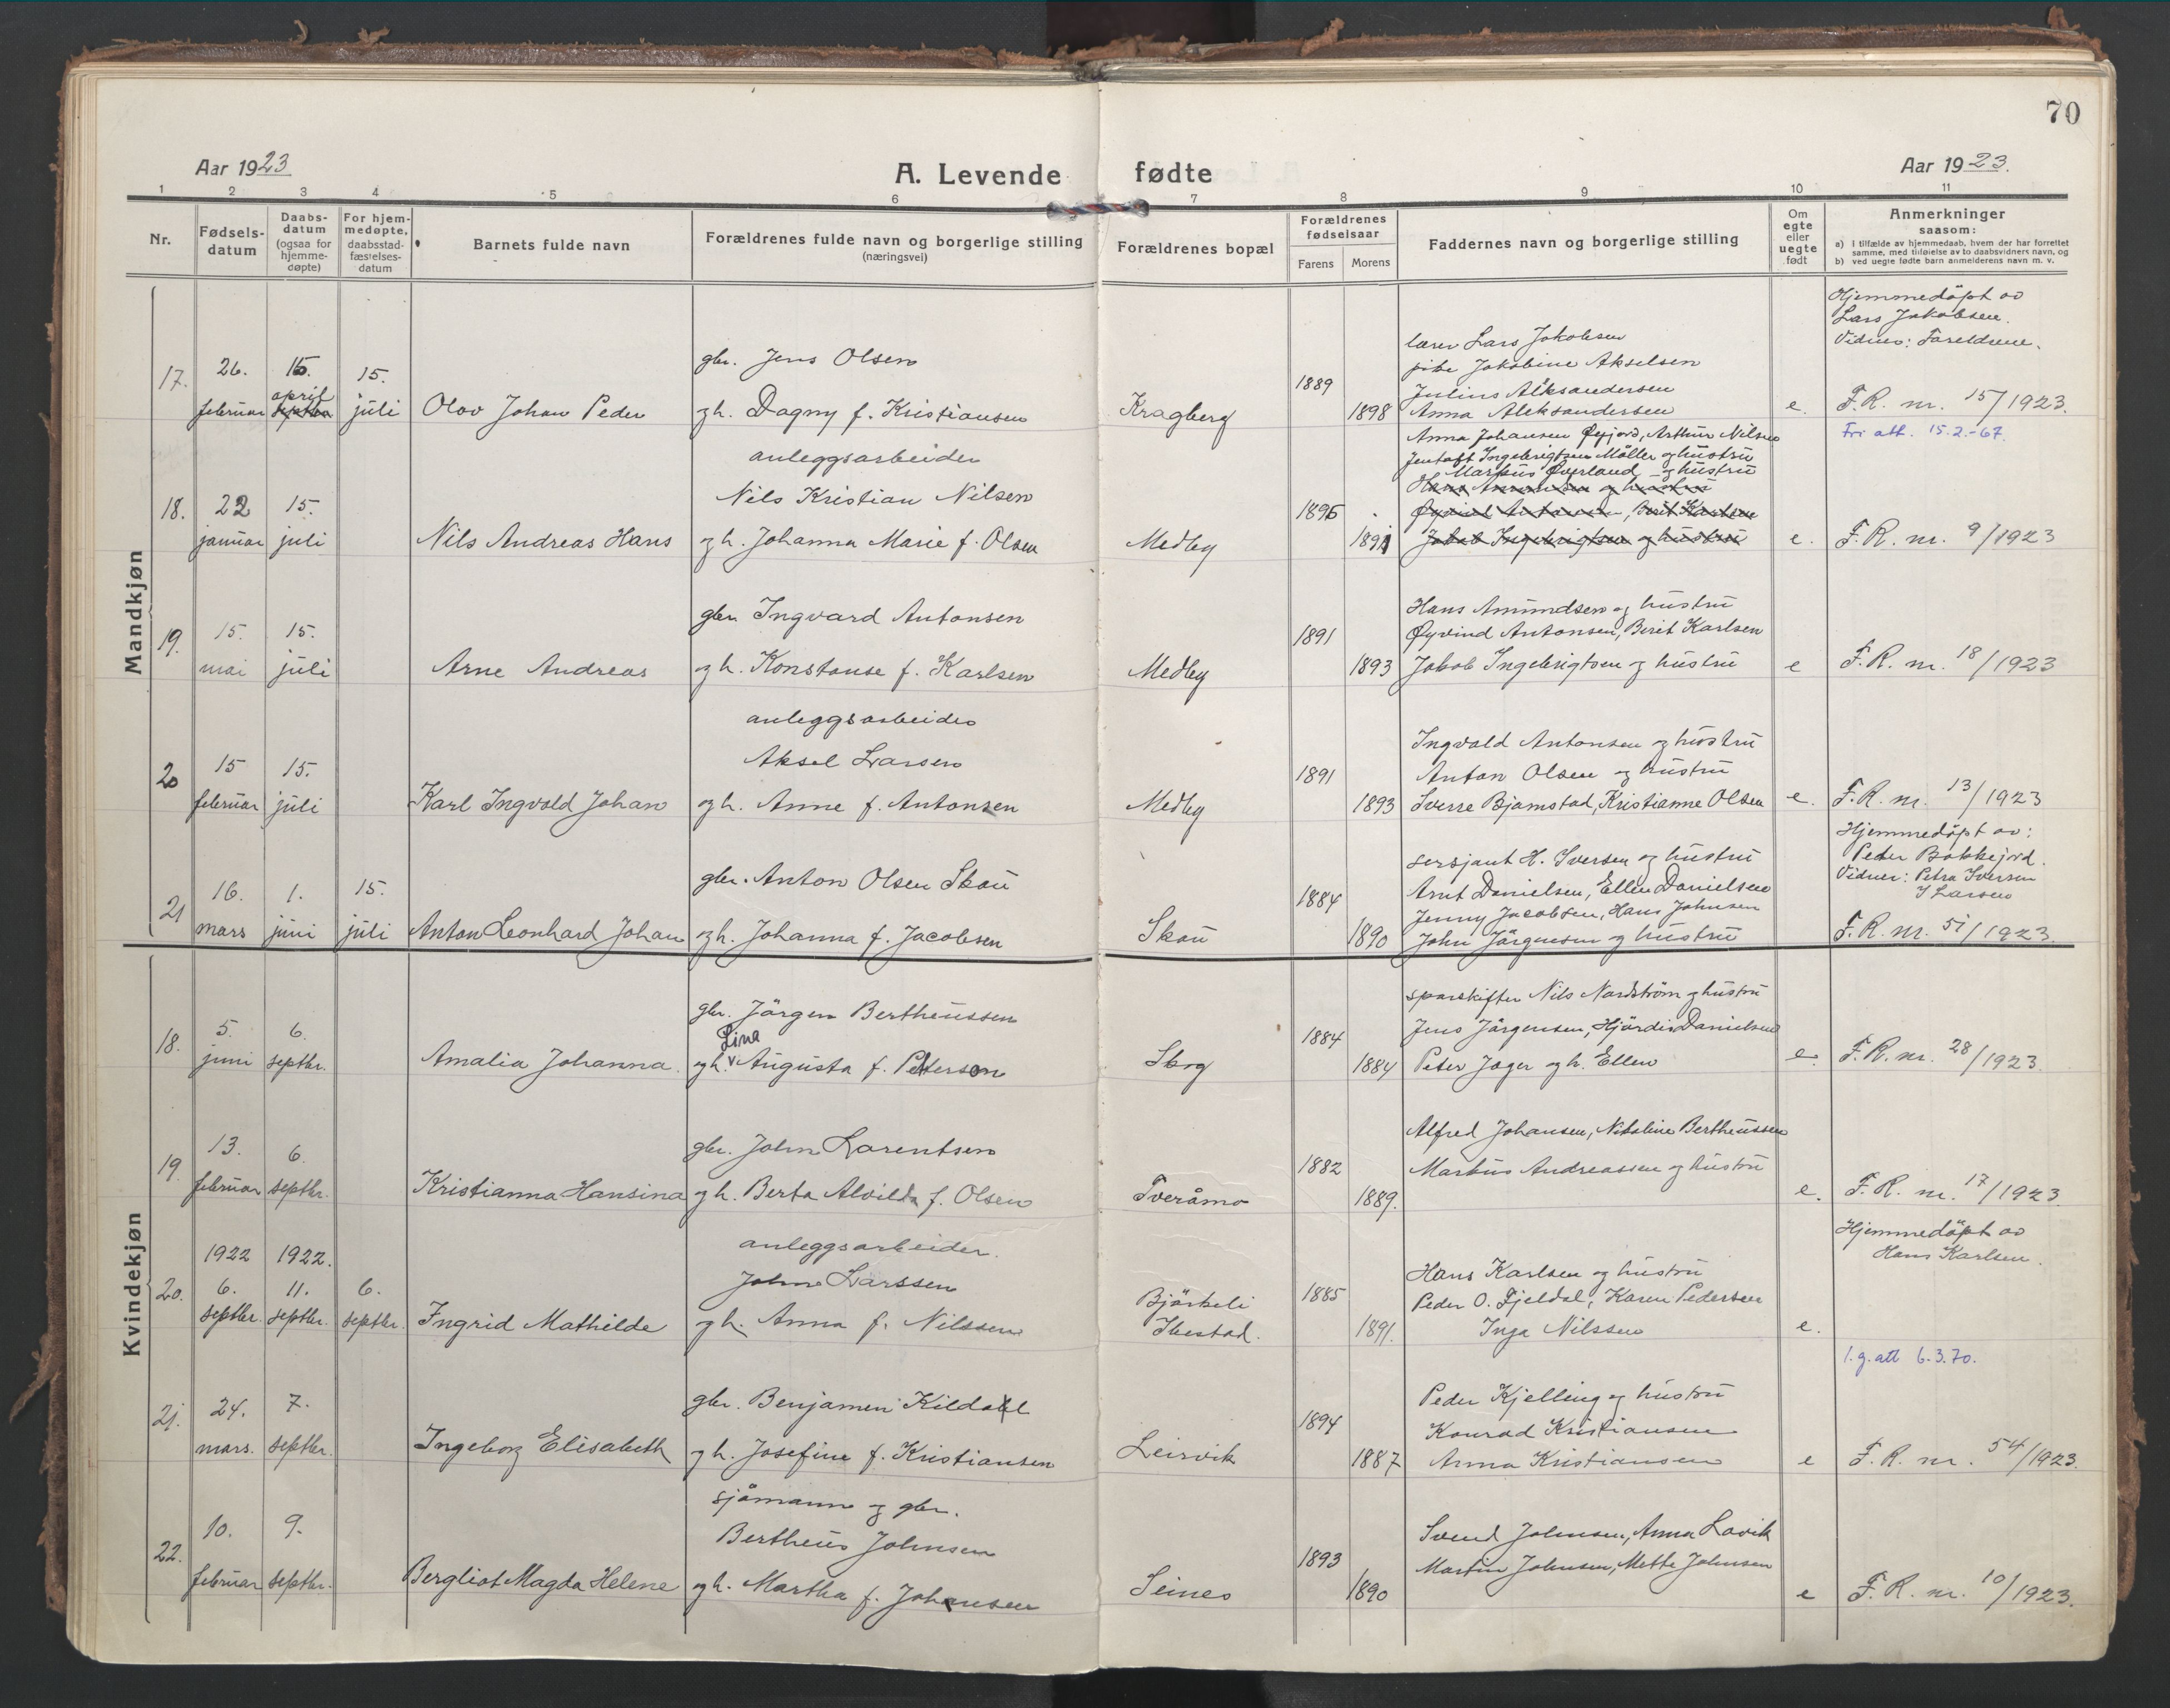 70
Aar 1923
A. Levende fødte
Aar 1923.
1 2 3 4 5 6 7 8 9 10 11
Nr.
Fødselsdatum
Daabsdatum (ogsaa for hjemmedøpte)
For hjemmedøpte, daabsstadfæstelsesdatum
Barnets fulde navn
Forældrenes fulde navn og borgerlige stilling (næringsvei)
Forældrenes bopæl
Forældrenes fødselsaar
Farens
Morens
Faddernes navn og borgerlige stilling
Om egte eller uegte født
Anmerkninger saasom:
a) I tilfælde av hjemmedaab, hvem der har forrettet samme, med tilføielse av to daabsvidners navn, og
b) ved uegte fødte barn anmelderens navn m. v.
Mandkjøn
17.
26. februar
15. april
15. juli
Olav Johan Peder
gbr. Jens Olsen
og h. Dagny f. Kristiansen
Kragberg
1889
1898
lærer Lars Jakobsen
pike Jakobine Akselsen
Julius Aleksandersen
Anna Aleksandersen
e.
Hjemmedöpt av
Lars Jakobsen.
Vidner: Foreldrene.
F.R. nr. 15/1923.
Fri att. 15.2.-67.
18.
22 januar
15. juli
Nils Andreas Hans
anleggsarbeider
Nils Kristian Nilsen
og h. Johanna Marie f. Olsen
Medby
1895
1891
Anna Johansen Øyjord, Arthur Nilsen
Jentoft Ingebrigtsen Möller og hustru
Markus Øverland og hustru
Hans Amundsen og hustru
Øyvind Antonsen, Berit Karlsen
Jakob Ingebrigtsen og hustru
e.
F.R. nr. 9/1923
19.
15. mai
15. juli
Arne Andreas
gbr. Ingvard Antonsen
og h. Konstanse f. Karlsen
Medby
1891
1893
Hans Amundsen og hustru
Øyvind Antonsen, Berit Karlsen
Jakob Ingebrigtsen og hustru
e
F.R. nr. 18/1923
20
15 februar
15. juli
Karl Ingvald Johan
anleggsarbeider
Aksel Larsen
og h. Anne f. Antonsen
Medby
1891
1893
Ingvald Antonsen og hustru
Anton Olsen og hustru
Sverre Bjamstad, Kristianne Olsen
e.
F.R. nr. 13/1923
21
16. mars
1. juni
15. juli
Anton Leonhard Johan
gbr. Anton Olsen Skou
og h. Johanna f. Jacobsen
Skou
1884
1890
sersjant H. Iversen og hustru
Arnt Danielsen, Ellen Danielsen
Jenny Jacobsen, Hans Johnsen
John Jörgensen og hustru
Hjemmedöpt av:
Peder Bakkejord.
Vidner: Petra Iversen
I Larsen
F.R. nr. 51/1923.
Kvindekjøn
18.
5. juni
6. septbr.
Amalia Johanna.
gbr. Jörgen Bertheussen
Lina
og h. Augusta f. Peterson
Skog
1884
1884
sporskifter Nils Nordström og hustru
Jens Jörgensen, Hjördis Danielsen
Peter Jager og h. Ellen
e.
F.R. nr. 28/1923.
19.
13. februar
6. septbr.
Kristianna Hansina
gbr. John Larentsen
og h. Berta Alvilda f. Olsen
Tveråmo
1882
1889.
Alfred Johansen, Nikoline Bertheussen
Markus Andreassen og hustru
e.
F.R. nr. 17/1923.
20.
1922 6. septbr.
1922. 11. septbr.
6. septbr.
Ingrid Mathilde
anleggsarbeider.
John Larssen
og h. Anna f. Nilssen
Bjärkeli
Ibestad.
1885
1891.
Hans Karlsen og hustru
Peder O. Fjeldal, Karen Pedersen
Inga Nilssen
e.
Hjemmedöpt av
Hans Karlsen.
1.g. att 6.3.70.
21.
24. mars.
7. septbr.
Ingeborg Elisabeth
gbr. Benjamin Kildal
og h. Josefine f. Kristiansen
Leirvik
1894
1887
Peder Kjelling og hustru
Konrad Kristiansen
Anna Kristiansen
e
F.R. nr. 54/1923.
22.
10. februar
9. septbr.
Bergliot Magda Helene
sjömann og gbr.
Bertheus Johnsen
og h. Martha f. Johansen
Seines
1893
1890
Svend Johnsen, Anna Lavik
Martin Johnsen, Mette Johnsen
e
F.R. nr. 10/1923.